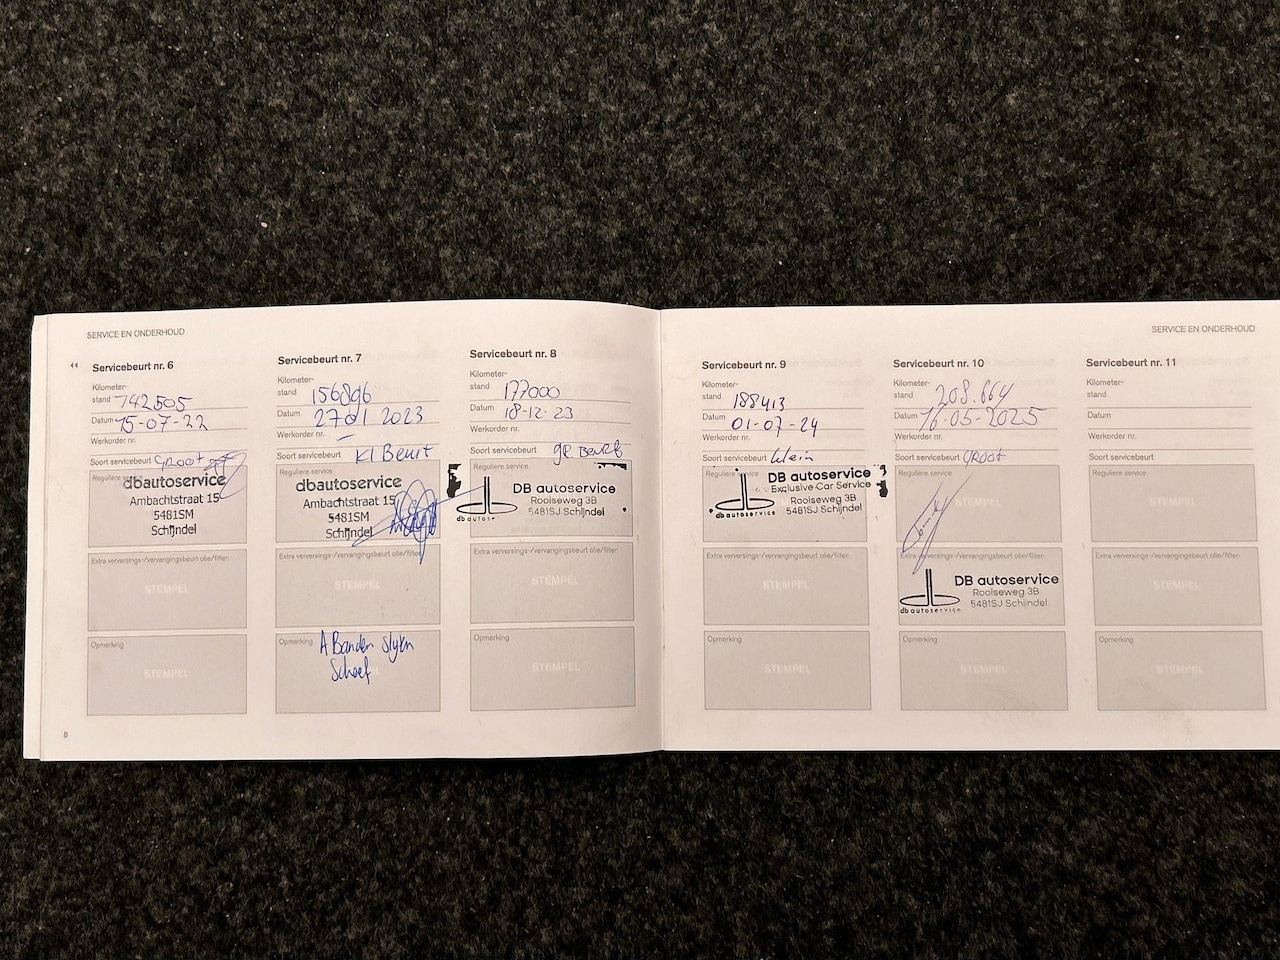 SERVICE EN ONDERHOUD
Servicebeurt nr. 6
Kilometer-
stand 142505
Datum 15-07-22
Werkorder nr.
Soort servicebeurt GROOT
Reguliere service
dbautoservice
Ambachtstraat 15
5481SM
Schijndel
Extra verversings-/vervangingsbeurt olie/filter:
STEMPEL
Opmerking
STEMPEL
8
Servicebeurt nr. 7
Kilometer-
stand 156896
Datum 27 01 2023
Werkorder nr.
Soort servicebeurt Kl Beurt
Reguliere service
dbautoservice
Ambachtstraat 15
5481SM
Schijndel
Extra verversings-/vervangingsbeurt olie/filter:
STEMPEL
Opmerking
A Banden Slyten
Scheef
Servicebeurt nr. 8
Kilometer-
stand 177000
Datum 18-12-23
Werkorder nr.
Soort servicebeurt gr Beurt
Reguliere service
DB autoservice
Rooiseweg 3B
5481SJ Schijndel
Extra verversings-/vervangingsbeurt olie/filter:
STEMPEL
Opmerking
STEMPEL
SERVICE EN ONDERHOUD
Servicebeurt nr. 9
Kilometer-
stand 188413
Datum 01-07-24
Werkorder nr.
Soort servicebeurt klein
Reguliere service
DB autoservice
Exclusive Car Service
Rooiseweg 3B
5481SJ Schijndel
db autoservice
Extra verversings-/vervangingsbeurt olie/filter:
STEMPEL
Opmerking
STEMPEL
Servicebeurt nr. 10
Kilometer-
stand 208.664
Datum 16-05-2025
Werkorder nr.
Soort servicebeurt GROOT
Reguliere service
Extra verversings-/vervangingsbeurt olie/filter:
DB autoservice
Rooiseweg 3B
5481SJ Schijndel
db autoservice
Opmerking
STEMPEL
Servicebeurt nr. 11
Kilometer-
stand
Datum
Werkorder nr.
Soort servicebeurt
Reguliere service
STEMPEL
Extra verversings-/vervangingsbeurt olie/filter:
STEMPEL
Opmerking
STEMPEL